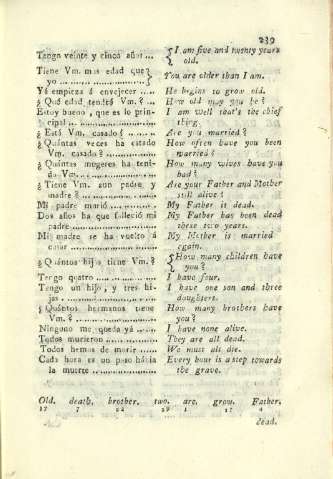 239
Tengo veinte y cinco años ... { I am five and twenty years old.
Tiene Vm. mas edad que yo ..................... } You are older than I am.
Yá empieza á envejecer .... He begins to grow old.
¿ Qué edad tendrá Vm. ? ... How old may you be ?
Estoy bueno , que es lo prin- I am well that's the chief
cipal ........................ thing.
¿ Está Vm. casado ? ........ Are you married ?
¿ Quántas veces ha estado How often have you been
Vm. casado ? ............... married ?
¿ Quántas mugeres ha teni- How many wives have you
do Vm. ..................... had ?
¿ Tiene Vm. aun padre y Are your Father and Mother
madre ? ..................... still alive ?
Mi padre murió............. My Father is dead.
Dos años ha que falleció mi My Father has been dead
padre........................ these two years.
Mi madre se ha vuelto á My Mother is married
casar ....................... again.
¿ Quántos hijos tiene Vm. ? { How many children have you ?
Tengo quatro ............... I have four.
Tengo un hijo , y tres hi- I have one son and three
jas .......................... daughters.
¿ Quántos hermanos tiene How many brothers have
Vm. ? ....................... you ?
Ninguno me queda yá ..... I have none alive.
Todos murieron ............. They are all dead.
Todos hemos de morir ..... We must all die.
Cada hora es un paso hácia Every hour is a step towards
la muerte ................... the grave.
Old. death. brother. two. are. grow. Father.
17 7 22 29 1 17 4
dead.